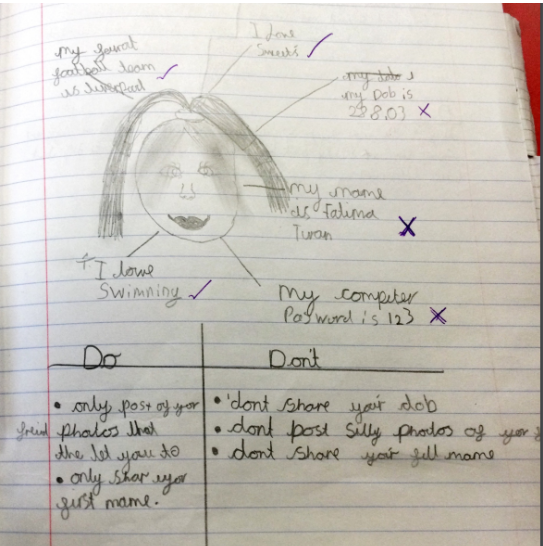 I love
Sweets
my favrat
football team
is liverpool
my dob is
298.03
my name
is Fatima
Iwan
I love
Swimming
my computer
Password is 123
Do
Don't
• only post of yor
freind photos that
the let you to
• only shar yor
first name.
• dont share your dob
• dont post silly photos of yor f
• dont share your full name